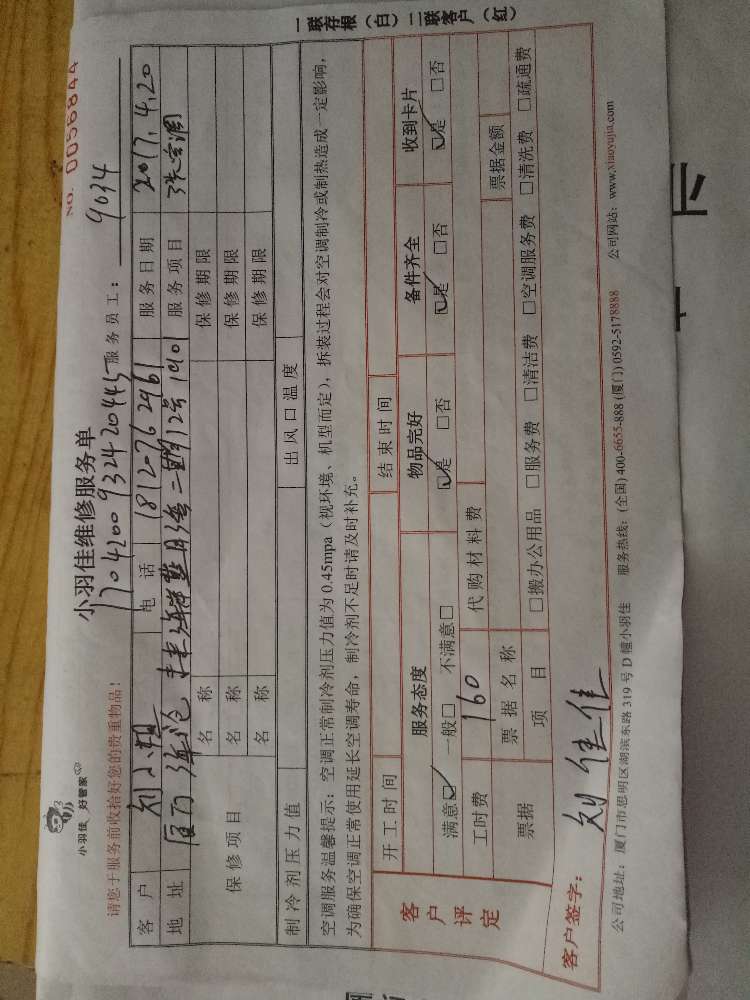 小羽佳 好管家
小羽佳维修服务单
NO. 0056844
请您于服务前收拾好您的贵重物品!
170420093242044 服务员工: 9034
客户 刘小姐 电话 18127629661 服务日期 2017.4.20
地址 二期12号1901 服务项目
保修项目 名称 保修期限
名称 保修期限
名称 保修期限
制冷剂压力值 出风口温度
空调服务温馨提示: 空调正常制冷剂压力值为0.45mpa (视环境、机型而定), 拆装过程会对空调制冷或制热造成一定影响,
为确保空调正常使用延长空调寿命, 制冷剂不足时请及时补充。
客户评定 开工时间 结束时间
服务态度 物品完好 备件齐全 收到卡片
满意☑ 一般□ 不满意□ ☑是 □否 ☑是 □否 ☑是 □否
工时费 160 代购材料费
票据 票据名称 票据金额
项目 □搬办公用品 □服务费 □清洁费 □空调服务费 □清洗费 □疏通费
客户签字: 刘佳佳
公司地址: 厦门市思明区湖滨东路319号D幢小羽佳 服务热线: (全国) 400-6655-888 (厦门) 0592-5178888 公司网站: www.xiaoyujia.com
一联存根(白) 二联客户(红)
卡